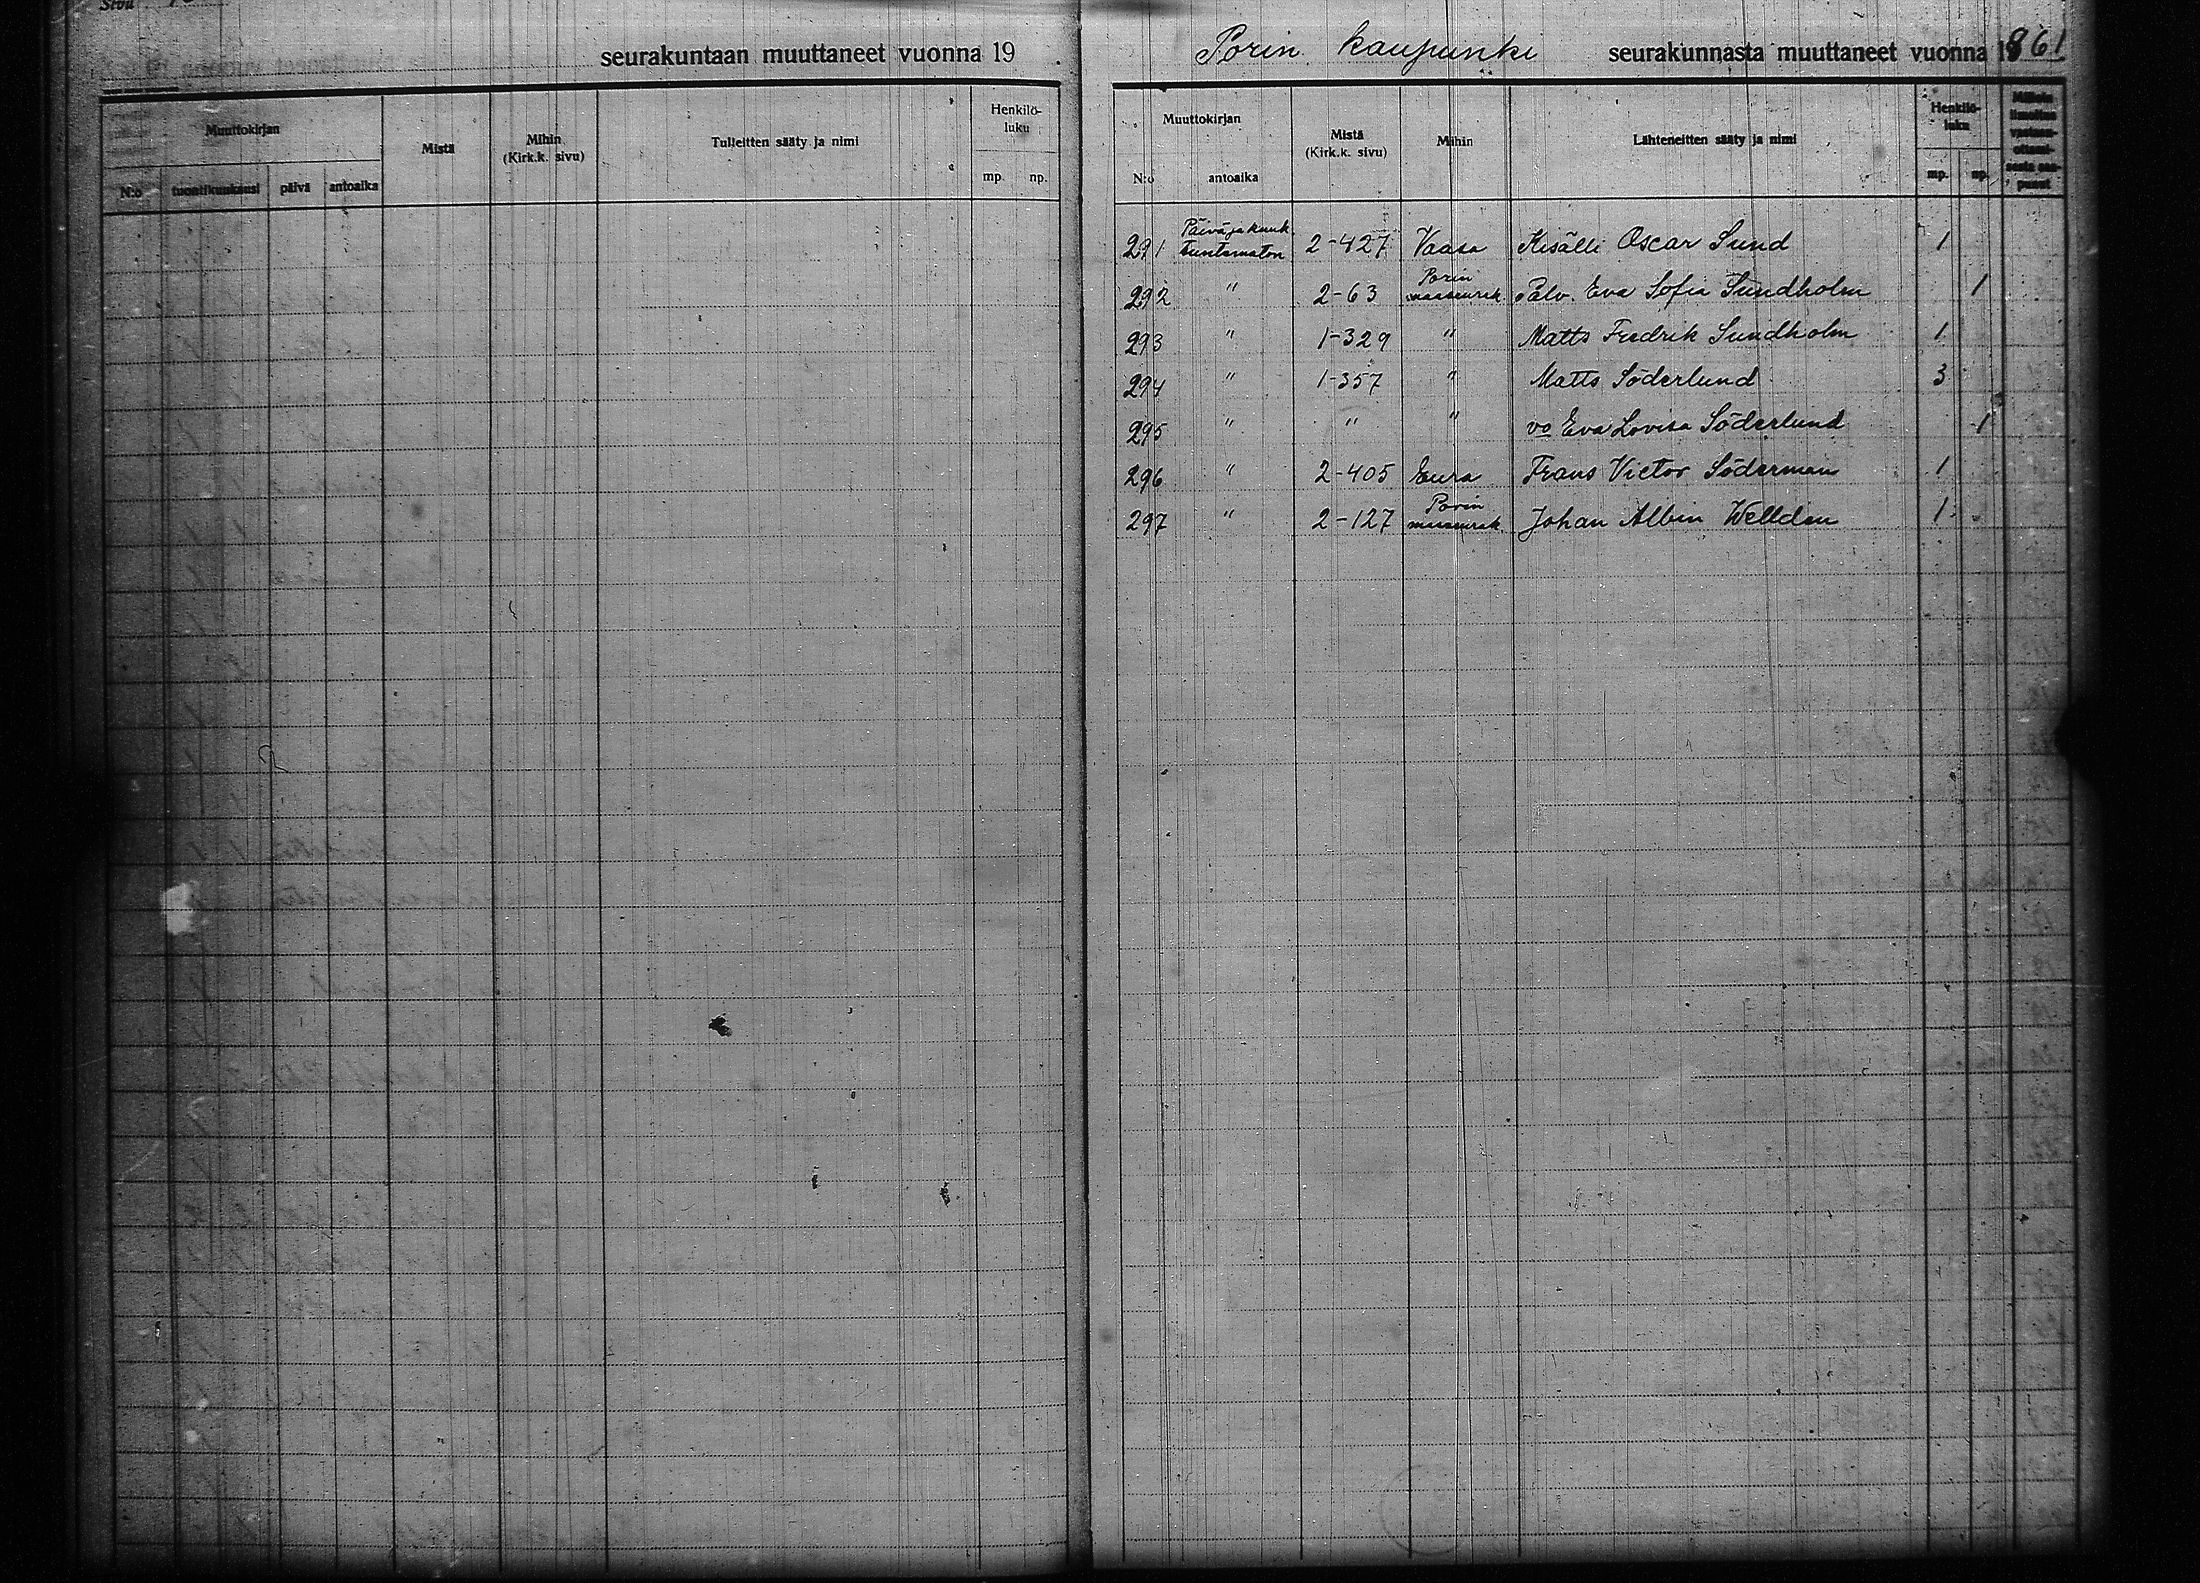 Sivu
seurakuntaan muuttaneet vuonna 19
Muuttokirjan
Mistä
Mihin
(Kirk.k. sivu)
Tulleitten sääty ja nimi
Henkilö-
luku
N:o tuontikuukausi päivä antoaika
mp. np.
Porin kaupunki seurakunnasta muuttaneet vuonna 1861
Muuttokirjan
Mistä
(Kirk.k. sivu)
Mihin
Lähteneitten sääty ja nimi
Henkilö-
luku
N:o antoaika
mp. np.
291 Päivä ja kuuk. tuntematon 2-427 Vaasa Kisälli Oscar Sund 1
292 " 2-63 Porin maaseurak. Palv. Eva Sofia Sundholm 1
293 " 1-329 " Matts Fredrik Sundholm 1
294 " 1-357 " Matts Söderlund 3
295 " " " vo Eva Lovisa Söderlund 1
296 " 2-405 Eura Frans Victor Söderman 1
297 " 2-127 Porin maaseurak. Johan Albin Wellden 1